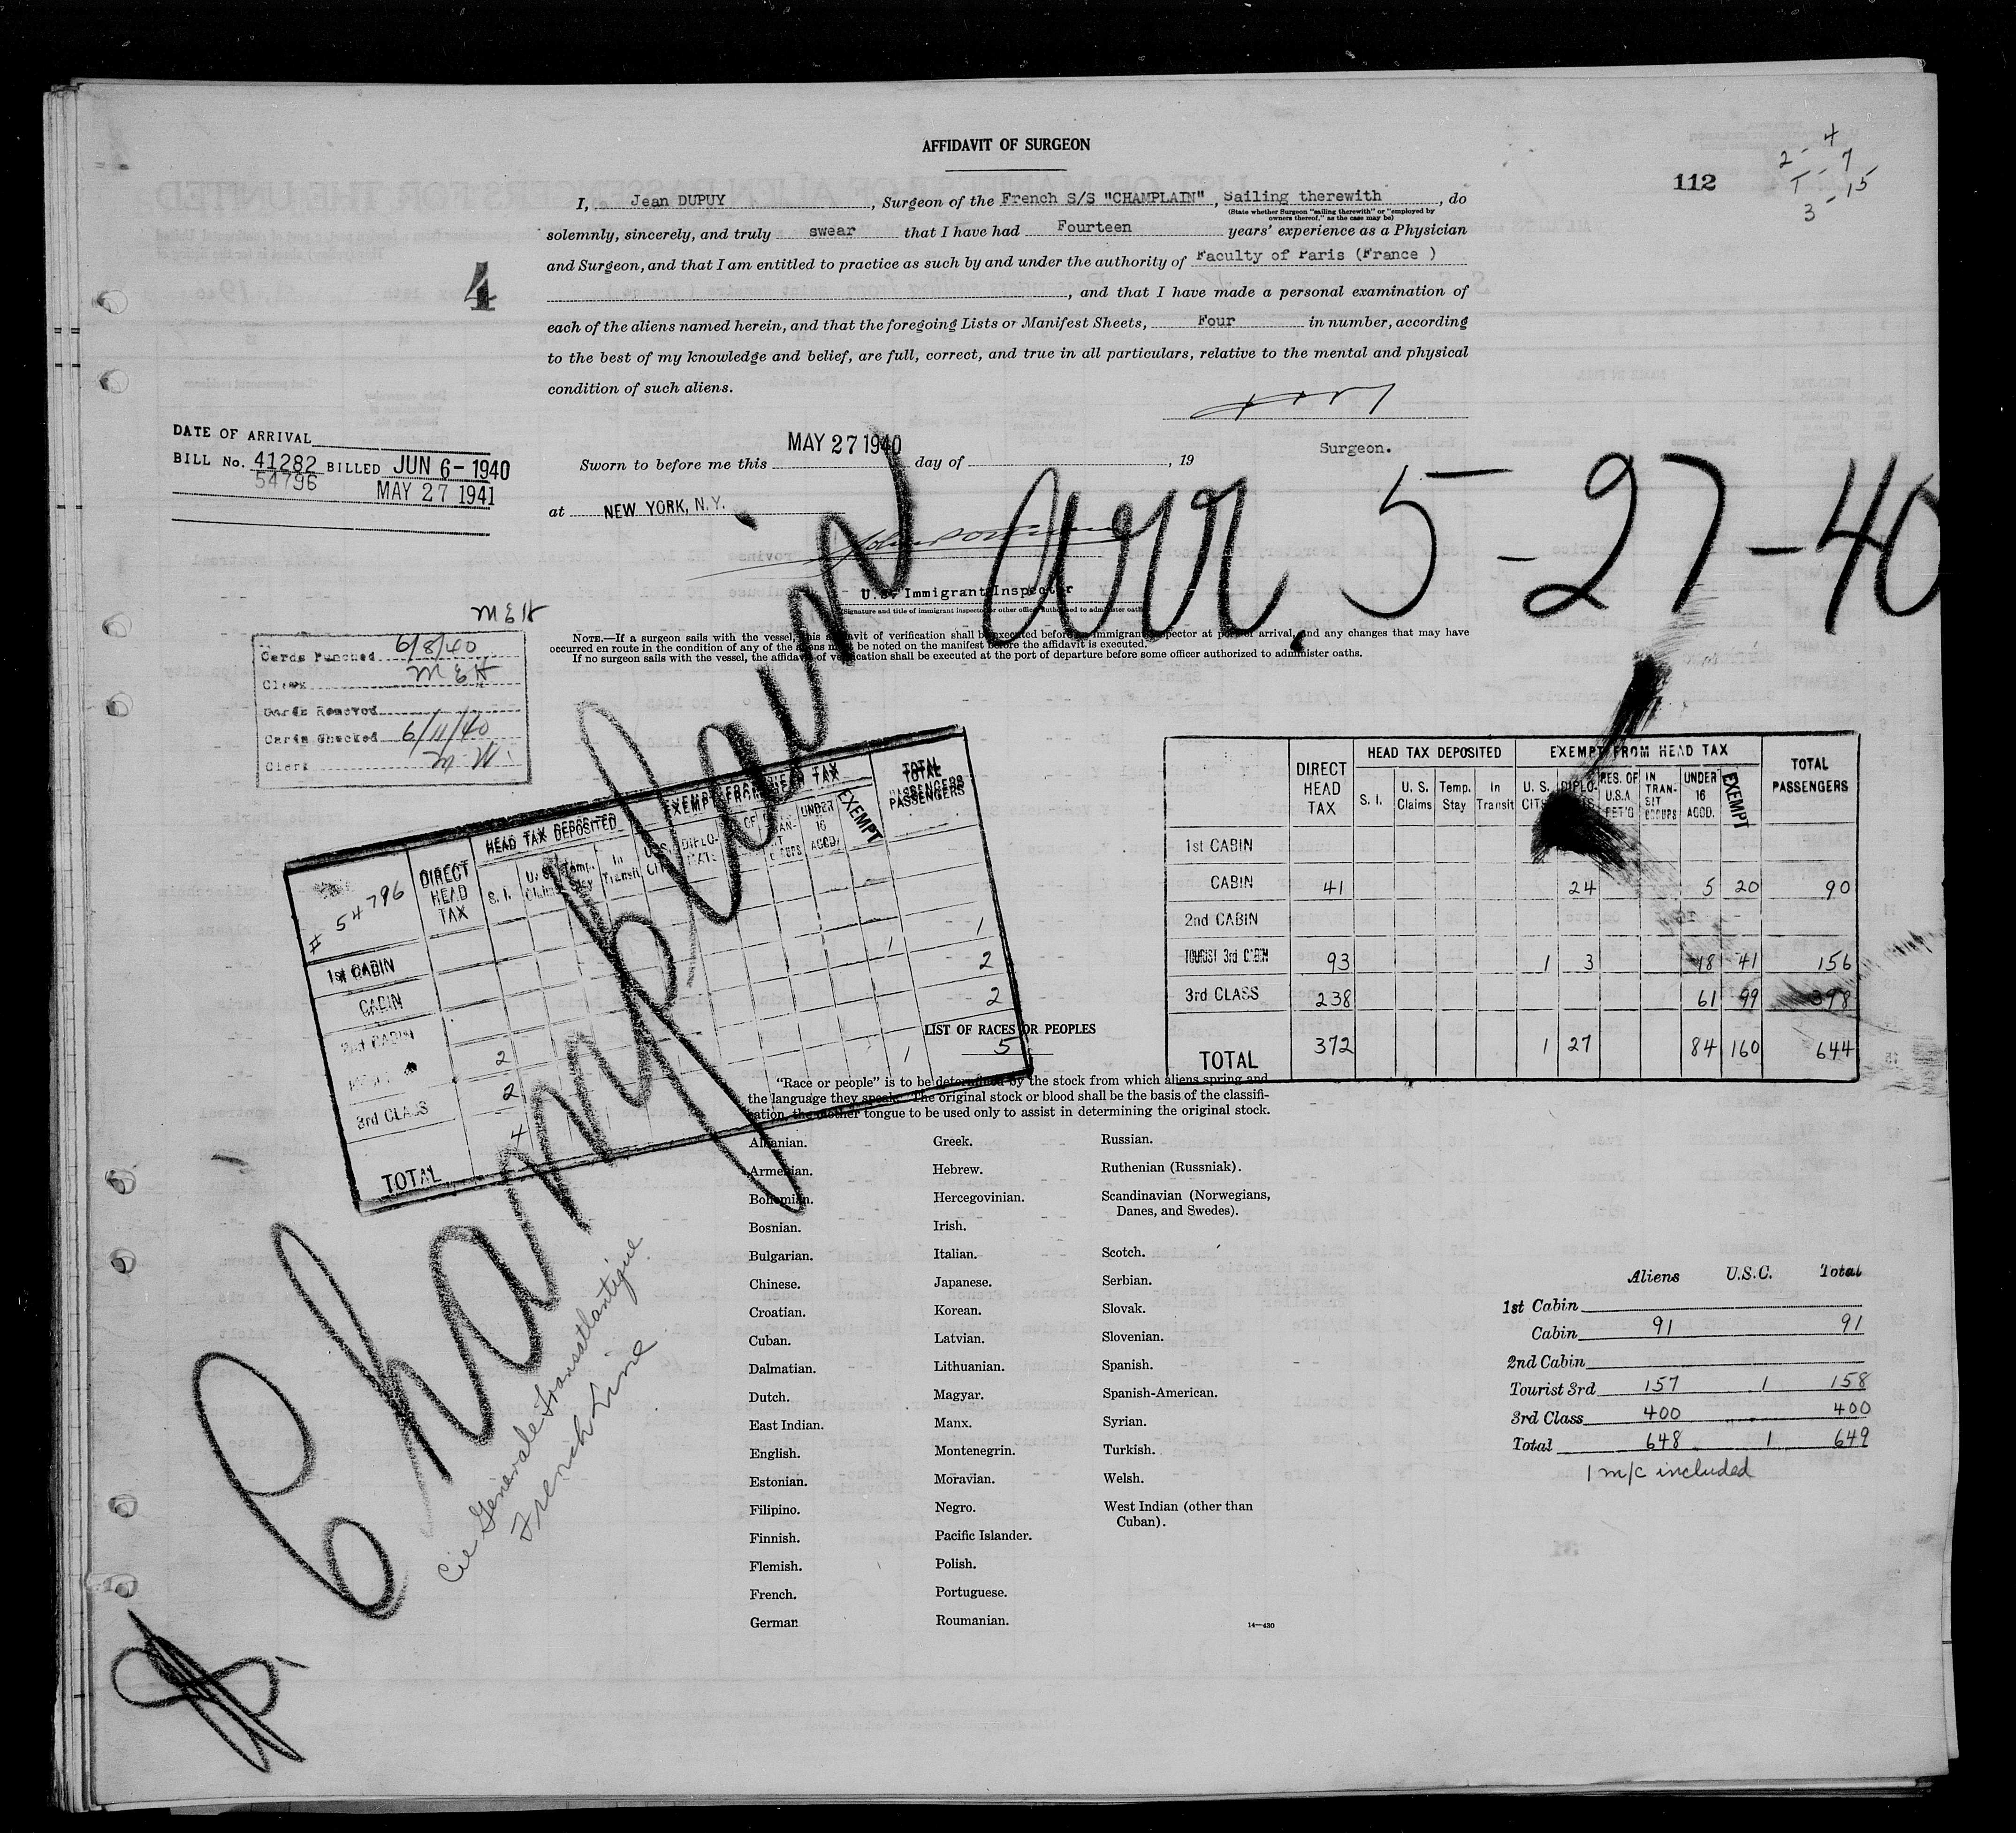 AFFIDAVIT OF SURGEON
112
2 - 4
T - 7
3 - 15
I, Jean DUPUY, Surgeon of the French S/S "CHAMPLAIN", Sailing therewith, do
(State whether Surgeon "sailing therewith" or "employed by
owners thereof," as the case may be)
solemnly, sincerely, and truly swear that I have had Fourteen years' experience as a Physician
and Surgeon, and that I am entitled to practice as such by and under the authority of Faculty of Paris (France )
4
, and that I have made a personal examination of
each of the aliens named herein, and that the foregoing Lists or Manifest Sheets, Four in number, according
to the best of my knowledge and belief, are full, correct, and true in all particulars, relative to the mental and physical
condition of such aliens.
Surgeon.
DATE OF ARRIVAL
BILL No. 41282 BILLED JUN 6 - 1940
54796 MAY 27 1941
Sworn to before me this MAY 27 1940 day of , 19
at NEW YORK, N.Y.
Champlain arr. 5-27-40
U.S. Immigrant Inspector
(Signature and title of immigrant inspector or other officer authorized to administer oath)
NOTE.—If a surgeon sails with the vessel, this affidavit of verification shall be executed before an immigrant inspector at port of arrival, and any changes that may have
occurred en route in the condition of any of the aliens must be noted on the manifest before the affidavit is executed.
If no surgeon sails with the vessel, the affidavit of verification shall be executed at the port of departure before some officer authorized to administer oaths.
MEH
Cards Punched 6/8/40
Clerk MEH
Cards Removed
Cards Checked 6/11/40
Clerk M W
# 54796
DIRECT HEAD TAX
HEAD TAX DEPOSITED
EXEMPT FROM HEAD TAX
TOTAL PASSENGERS
S. I. U. S. Claims Temp. Stay In Transit U. S. CITS DIPLO-MATS UNDER 16 ACCD. EXEMPT
1st CABIN
CABIN 1 1
2nd CABIN 2
2 2
3rd CLASS 2
TOTAL 4 1 5
DIRECT HEAD TAX
HEAD TAX DEPOSITED
EXEMPT FROM HEAD TAX
TOTAL PASSENGERS
S. I. U. S. Claims Temp. Stay In Transit U. S. CITS DIPLO- RES. OF U.S.A RET'G IN TRAN-SIT GROUPS UNDER 16 ACCD. EXEMPT
1st CABIN
CABIN 41 24 5 20 90
2nd CABIN
TOURIST 3rd CABIN 93 1 3 18 41 156
3rd CLASS 238 61 99 398
TOTAL 372 1 27 84 160 644
LIST OF RACES OR PEOPLES
"Race or people" is to be determined by the stock from which aliens spring and
the language they speak. The original stock or blood shall be the basis of the classifi-
cation, the mother tongue to be used only to assist in determining the original stock.
Albanian.
Armenian.
Bohemian.
Bosnian.
Bulgarian.
Chinese.
Croatian.
Cuban.
Dalmatian.
Dutch.
East Indian.
English.
Estonian.
Filipino.
Finnish.
Flemish.
French.
German
Greek.
Hebrew.
Hercegovinian.
Irish.
Italian.
Japanese.
Korean.
Latvian.
Lithuanian.
Magyar.
Manx.
Montenegrin.
Moravian.
Negro.
Pacific Islander.
Polish.
Portuguese.
Roumanian.
Russian.
Ruthenian (Russniak).
Scandinavian (Norwegians,
Danes, and Swedes).
Scotch.
Serbian.
Slovak.
Slovenian.
Spanish.
Spanish-American.
Syrian.
Turkish.
Welsh.
West Indian (other than
Cuban).
14—430
Cie Generale Transatlantique
French Line
Aliens U.S.C. Total
1st Cabin
Cabin 91 91
2nd Cabin
Tourist 3rd 157 1 158
3rd Class 400 400
Total 648 1 649
1 m/c included